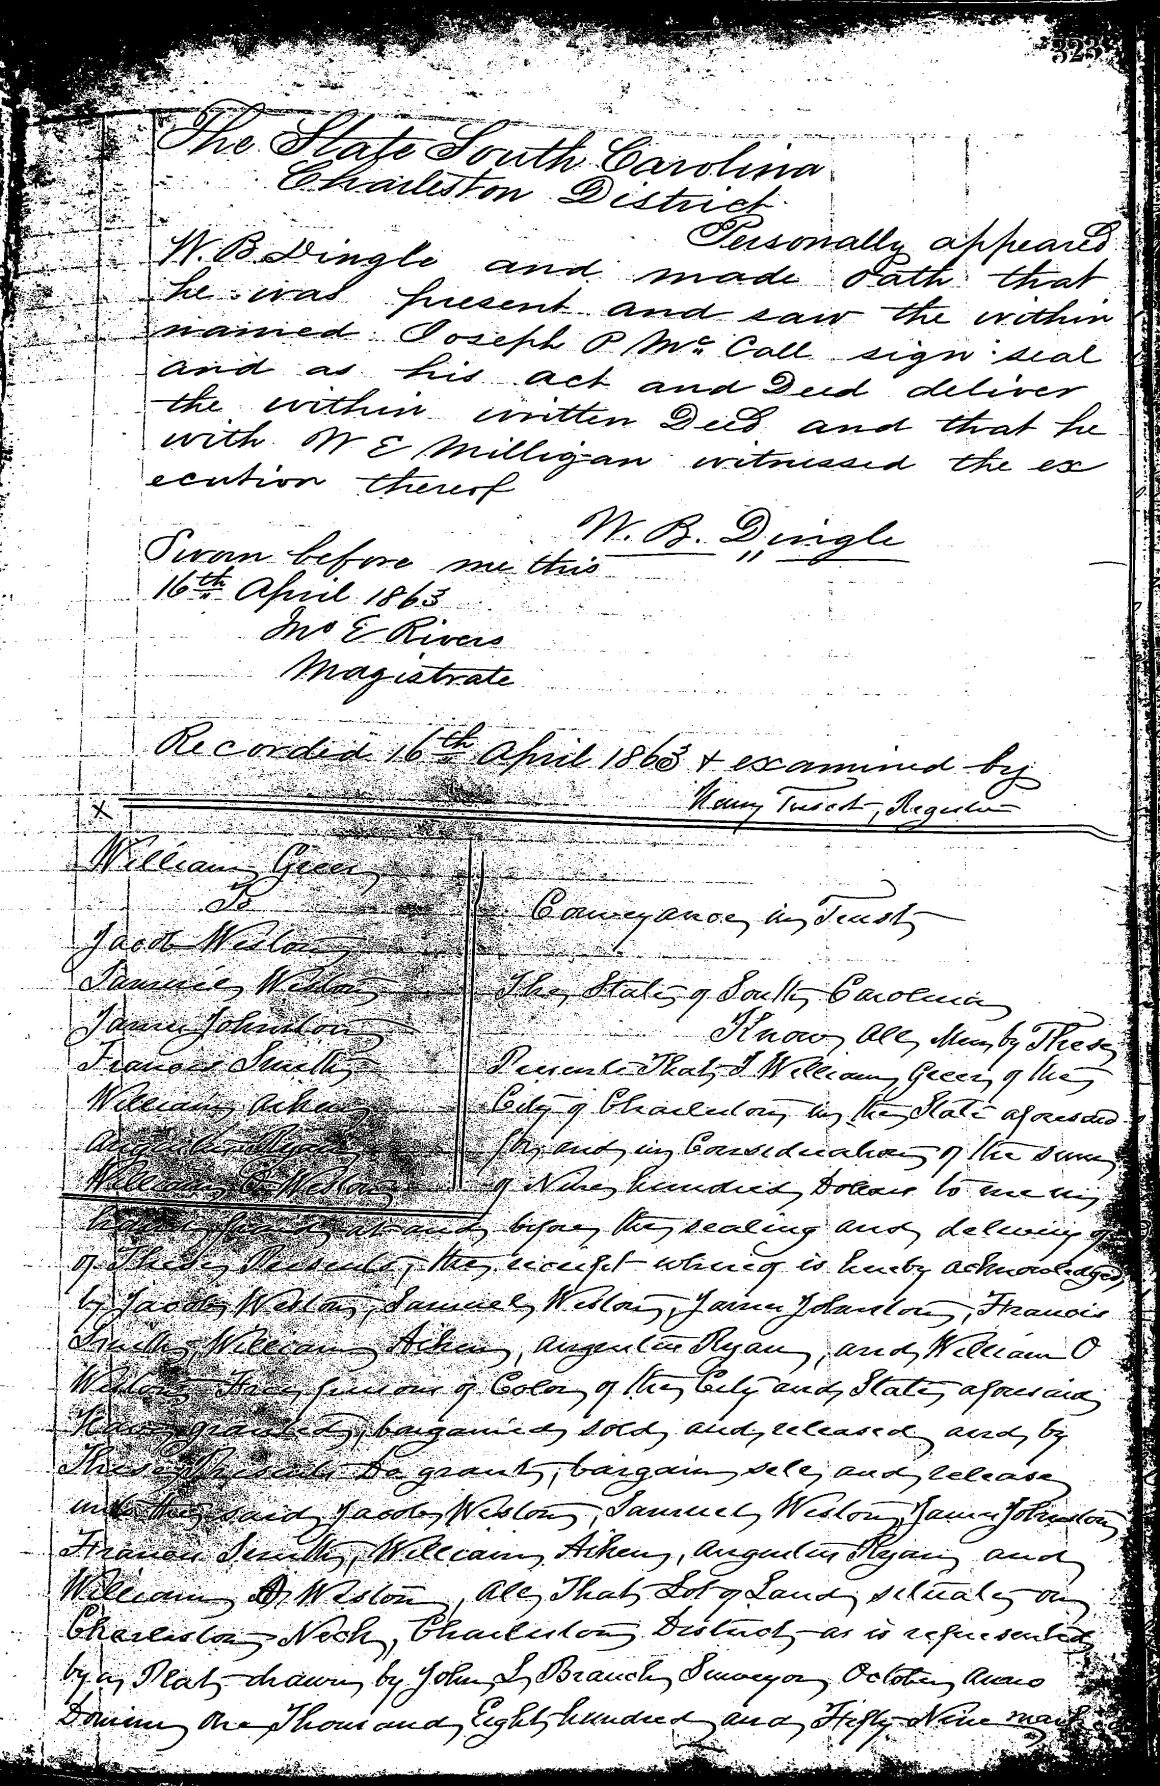 323
The State South Carolina
Charleston District
Personally appeared
W. B. Dingle and made Oath that
he was present and saw the within
named Joseph P McCall sign seal
and as his act and Deed deliver
the within written Deed and that he
with W E Milligan witnessed the ex
ecution thereof
W. B. Dingle
Sworn before me this
16th April 1863
Jno E Rivers
Magistrate
Recorded 16th April 1863 & examined by
Henry Trescot, Register
X
William Greer
To
Conveyance in Trust
Jacob Weston
Samuel Weston
The State of South Carolina
James Johnston
Know All Men by These
Francis Smith
Presents That I William Greer of the
William Aiken
City of Charleston in the State aforesaid
Augustin Ryan
for and in Consideration of the sum
William O Weston
of Nine hundred Dollars to me in
hand paid at and before the sealing and delivery of
of These Presents, the receipt whereof is hereby acknowledged
by Jacob Weston, Samuel Weston, James Johnston, Francis
Smith, William Aiken, Augustin Ryan, and William O
Weston Free persons of Color of the City and State aforesaid
Have granted, bargained sold and released and by
These Presents Do grant, bargain sell and release
unto the said Jacob Weston, Samuel Weston, James Johnston
Francis Smith, William Aiken, Augustin Ryan and
William O Weston, All That Lot of Land situate on
Charleston Neck, Charleston District as is represented
by a Plat drawn by John L Branch Surveyor October anno
Domini One Thousand Eight hundred and Fifty Nine mark